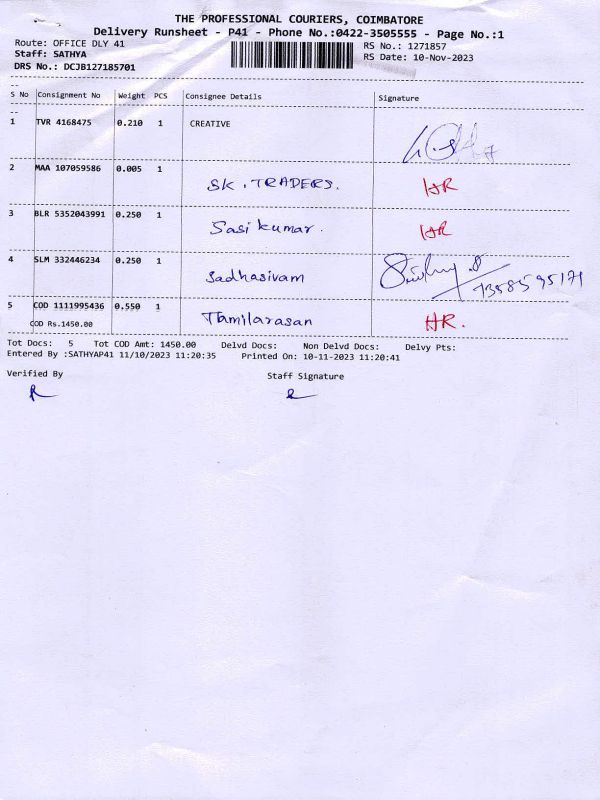 THE PROFESSIONAL COURIERS, COIMBATORE
Delivery Runsheet - P41 - Phone No.:0422-3505555 - Page No.:1
Route: OFFICE DLY 41 RS No.: 1271857
Staff: SATHYA RS Date: 10-Nov-2023
DRS No.: DCJB127185701
S No Consignment No Weight PCS Consignee Details Signature
1 TVR 4168475 0.210 1 CREATIVE
2 MAA 107059586 0.005 1 SK. TRADERS. HR
3 BLR 5352043991 0.250 1 Sasi kumar. HR
4 SLM 332446234 0.250 1 Sadhasivam 7358595171
5 COD 1111995436 0.550 1 Tamilarasan HR.
COD Rs.1450.00
Tot Docs: 5 Tot COD Amt: 1450.00 Delvd Docs: Non Delvd Docs: Delvy Pts:
Entered By :SATHYAP41 11/10/2023 11:20:35 Printed On: 10-11-2023 11:20:41
Verified By Staff Signature